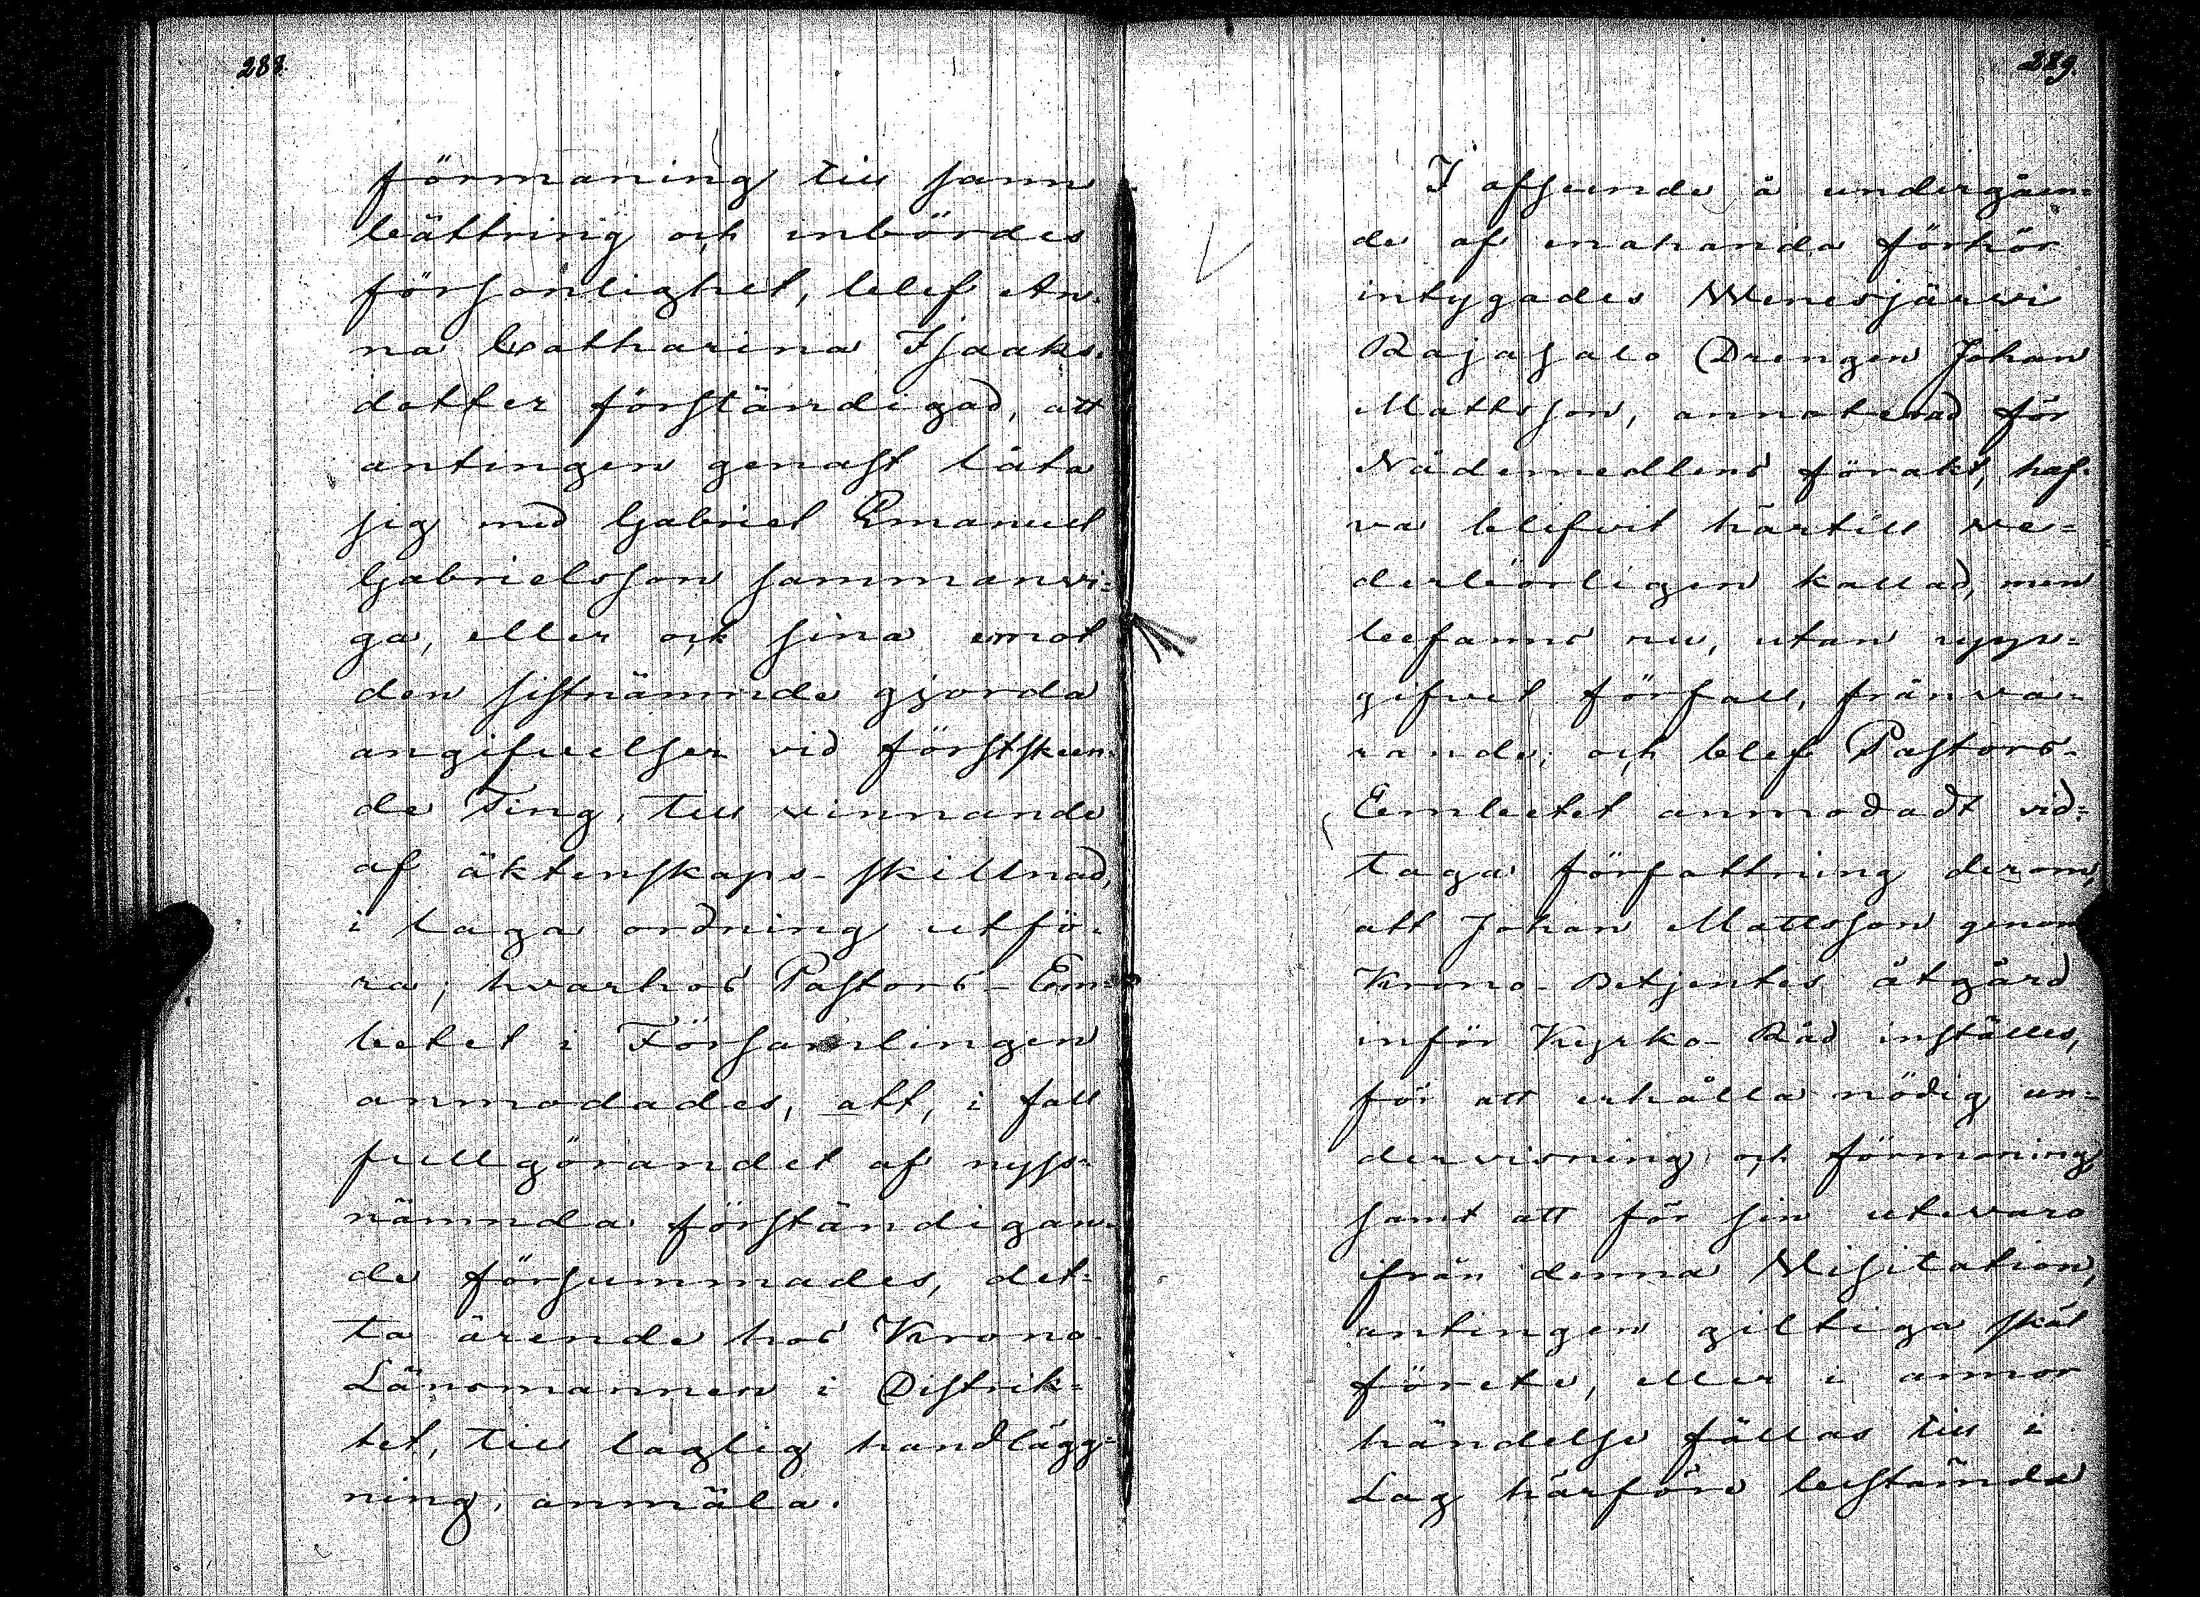 288.
förmaning till sann
bättring och inbördes
försonlighet, blef An-
na Catharina Isaaks-
dotter förständigad, att
antingen genast låta
sig med Gabriel Emanuel
Gabrielsson sammanvi-
ga, eller ock sina emot
den sistnämnde gjorda
angifvelser vid förstskun-
de Ting, till vinnande
af äktenskaps-skillnad,
i laga ordning utfö-
ra; hvarhos Pastors-Em-
betet i Församlingen
anmodades, att, i fall
fullgörandet af nyss-
nämnda förständigan-
de försummades, det-
ta ärende hos Krono-
Länsmannen i Distrik-
tet, till laglig handlägg-
ning, anmäla.
289.
I afseende å undergåen-
de af enahanda förhör
intygades Wenesjärvi
Rajasalo Drengen Johan
Mattsson, annoterad för
Nådemedlens förakt, haf-
va blifvit härtill ve-
derbörligen kallad, men
befanns nu, utan upp-
gifvet förfall, frånva-
rande; och blef Pastors-
Embetet anmodadt vid-
taga författning derom,
att Johan Mattsson genom
Krono-Betjentes åtgärd
inför Kyrko-Råd inställes,
för att erhålla nödig un-
dervisning och förmaning,
samt att för sin utevaro
ifrån denna Visitation,
antingen giltiga skäl
förete, eller i annor
händelse fällas till i
Lag härföre bestämda